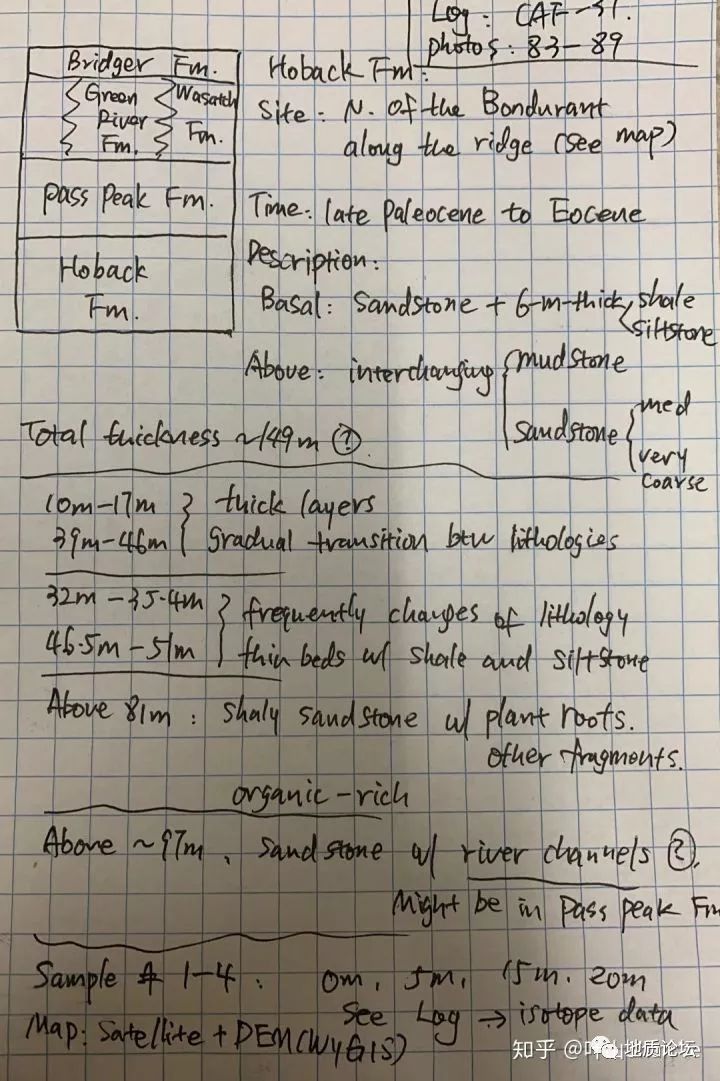 Log: CAF-31.
photos: 83-89
Bridger Fm.
Green River Fm.
Wasatch Fm.
Pass Peak Fm.
Hoback Fm.
Hoback Fm:
Site: N. of the Bondurant
along the ridge (see map)
Time: late Paleocene to Eocene
Description:
Basal: Sandstone + 6-m-thick shale
siltstone
Above: interchanging mudstone
sandstone med
very coarse
Total thickness ~149m ?
10m-17m } thick layers
39m-46m } Gradual transition btw lithologies
32m-35.4m } frequently changes of lithology
46.5m-51m } thin beds w/ shale and siltstone
Above 81m: shaly sandstone w/ plant roots.
other fragments.
organic-rich
Above ~97m, Sandstone w/ river channels ?
Might be in Pass peak Fm
Sample # 1-4: 0m, 5m, 15m. 20m
See Log → isotope data
Map: Satellite + DEM(WyGIS)
知乎 @
地质论坛